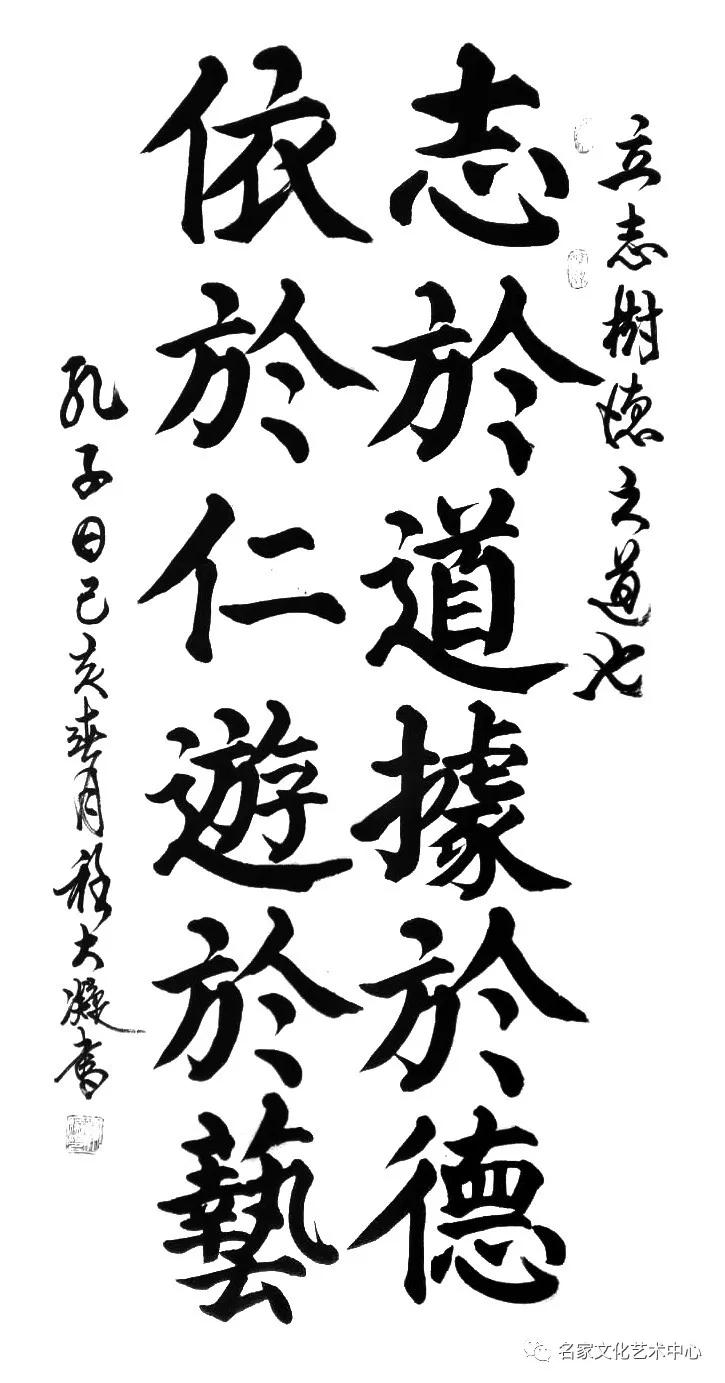 立志樹德之道也
志於道據於德
依於仁遊於藝
孔子曰己亥春月程大凝書
名家文化艺术中心